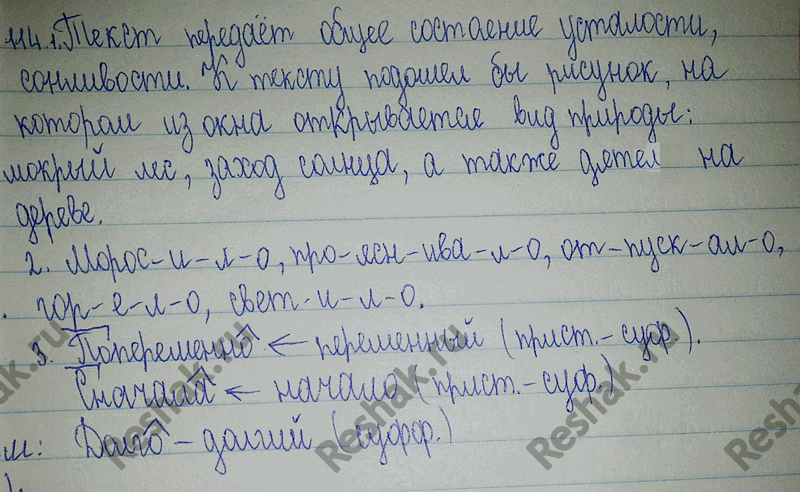 114.1. Текст передаёт общее состаение усталости,
сонливости. К тексту подошел бы рисунок, на
котором из окна открывается вид природы:
мокрый лес, заход солнца, а также дятел на
дереве.
2. Морос-и-л-о, про-ясн-ива-л-о, от-пуск-ал-о,
гор-е-л-о, свет-и-л-о.
3. Попеременно ← переменный (прист.-суф.).
Сначала ← начало (прист.-суф.)
М: Долго - долгий (суфф.)
Reshak.ru
Reshak.ru
Reshak.ru
Reshak.ru